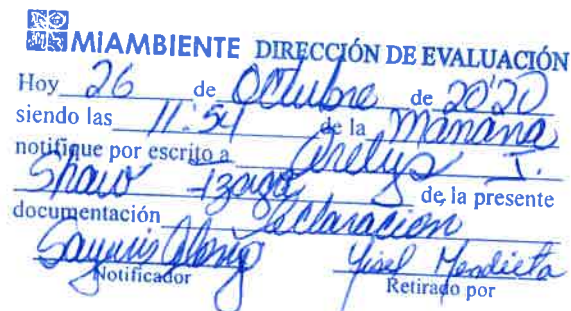 MiAMBIENTE DIRECCIÓN DE EVALUACIÓN
Hoy 26 de Octubre de 2020
siendo las 11:54 de la mañana
notifique por escrito a Arelys I.
Shaw Izaga de la presente
documentación declaracion
Notificador Yisel Mendieta
Retirado por